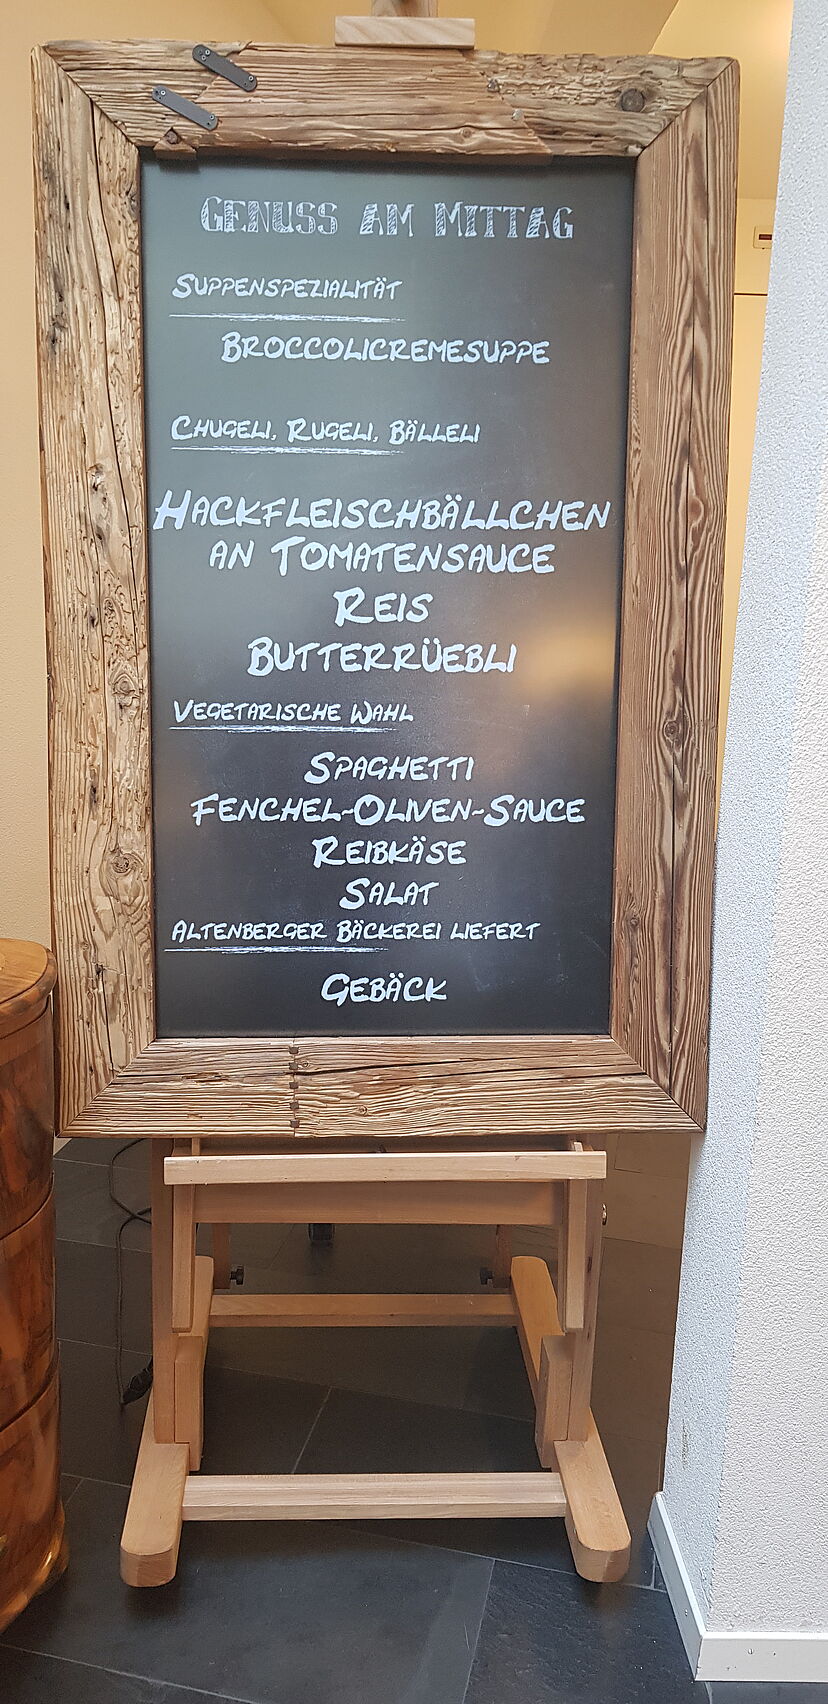 GENUSS AM MITTAG
SUPPENSPEZIALITÄT
BROCCOLICREMESUPPE
CHUGELI, RUGELI, BÄLLELI
HACKFLEISCHBÄLLCHEN
AN TOMATENSAUCE
REIS
BUTTERRÜEBLI
VEGETARISCHE WAHL
SPAGHETTI
FENCHEL-OLIVEN-SAUCE
REIBKÄSE
SALAT
ALTENBERGER BÄCKEREI LIEFERT
GEBÄCK